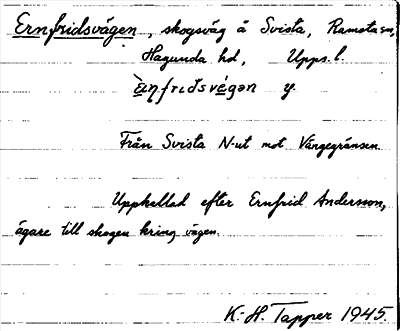 Ernfridsvägen, skogsväg å Svista, Ramsta sn,
Hagunda hd, Upps. l.
Från Svista N-ut mot Vängegränsen.
Uppkallad efter Ernfrid Andersson,
ägare till skogen kring vägen.
K.-H. Tapper 1945.